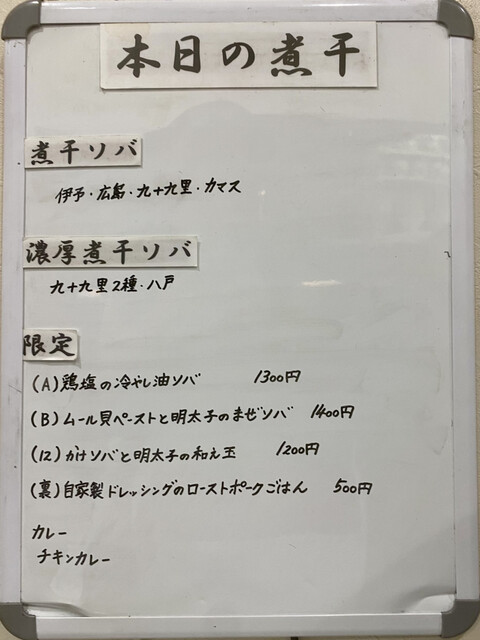 本日の煮干
煮干ソバ
伊予・広島・九十九里・カマス
濃厚煮干ソバ
九十九里2種・八戸
限定
(A)鶏塩の冷やし油ソバ 1300円
(B)ムール貝ペーストと明太子のまぜソバ 1400円
(12)かけソバと明太子の和え玉 1200円
(裏)自家製ドレッシングのローストポークごはん 500円
カレー
チキンカレー